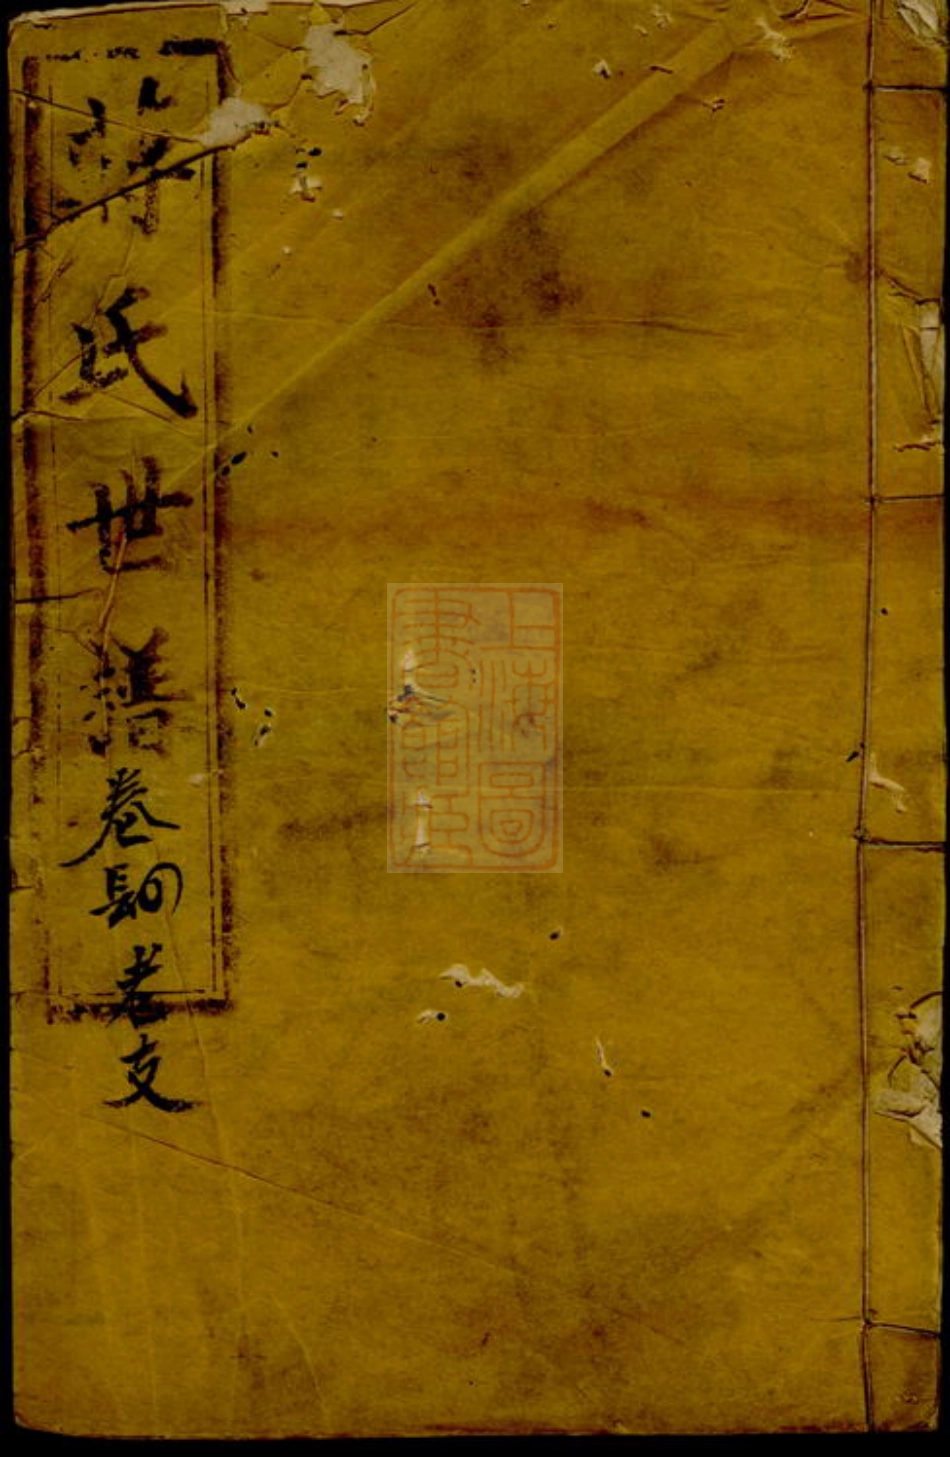 氏世譜
卷
老支
上海圖
書館藏